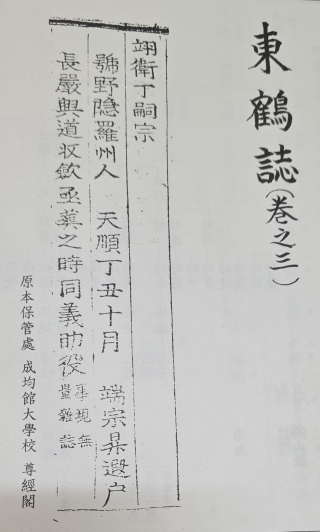 東鶴誌(卷之三)
翊衛丁嗣宗
號野隐羅州人 天順丁丑十月 端宗昇遐户
長嚴興道收斂丞葬之時同義助役 事現無
量雜誌
原本保管處 成均館大學校 尊經閣